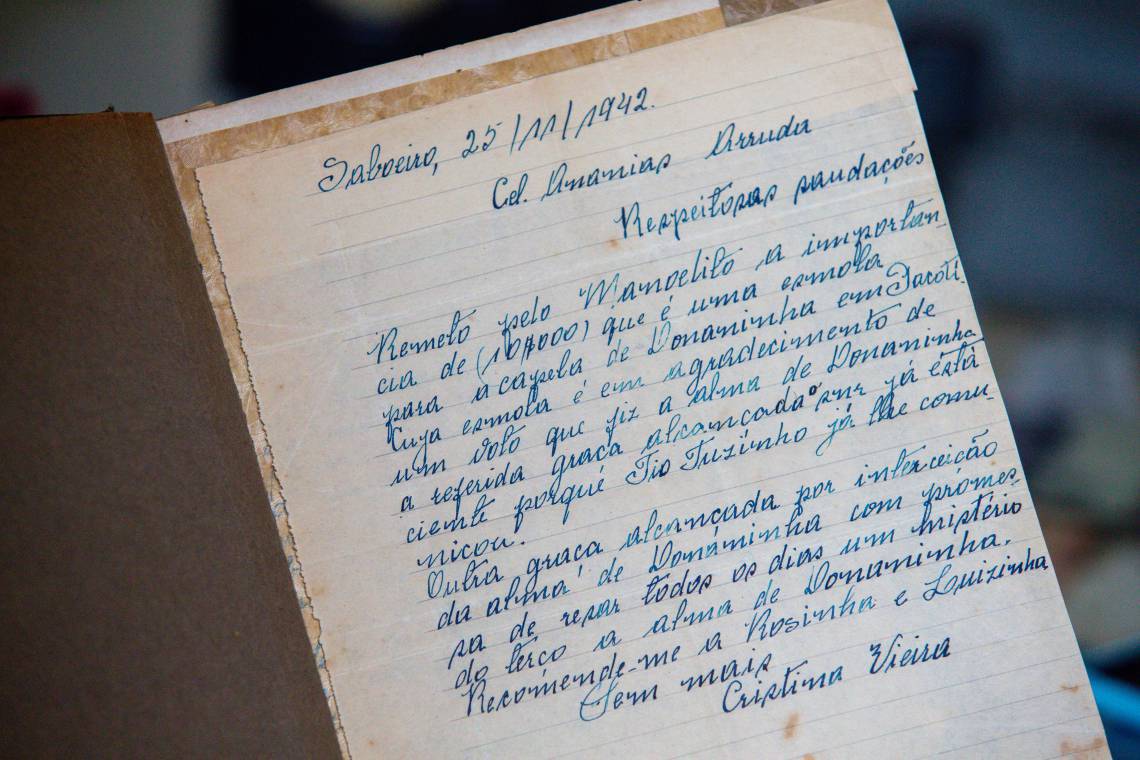 Saboeiro, 25/11/1942.
Cel. Ananias Arruda
Respeitosas saudações
Remeto pelo Manoelito a importan-
cia de (10$000) que é uma esmola
para a capela de Donaninha em Jacoti.
Cuja esmola é em agradecimento de
um voto que fiz a alma de Donaninha
a referida graca alcancada o snr já está
ciente porqué Tio Tuzinho já lhe comu-
nicou.
Outra graca alcancada por interceição
da alma de Donáninha com prómes-
sa de resar todos os dias um mistério
do terco a alma de Donaninha.
Recomende-me a Rosinha e Luizinha
Sem mais
Cristina Vieira